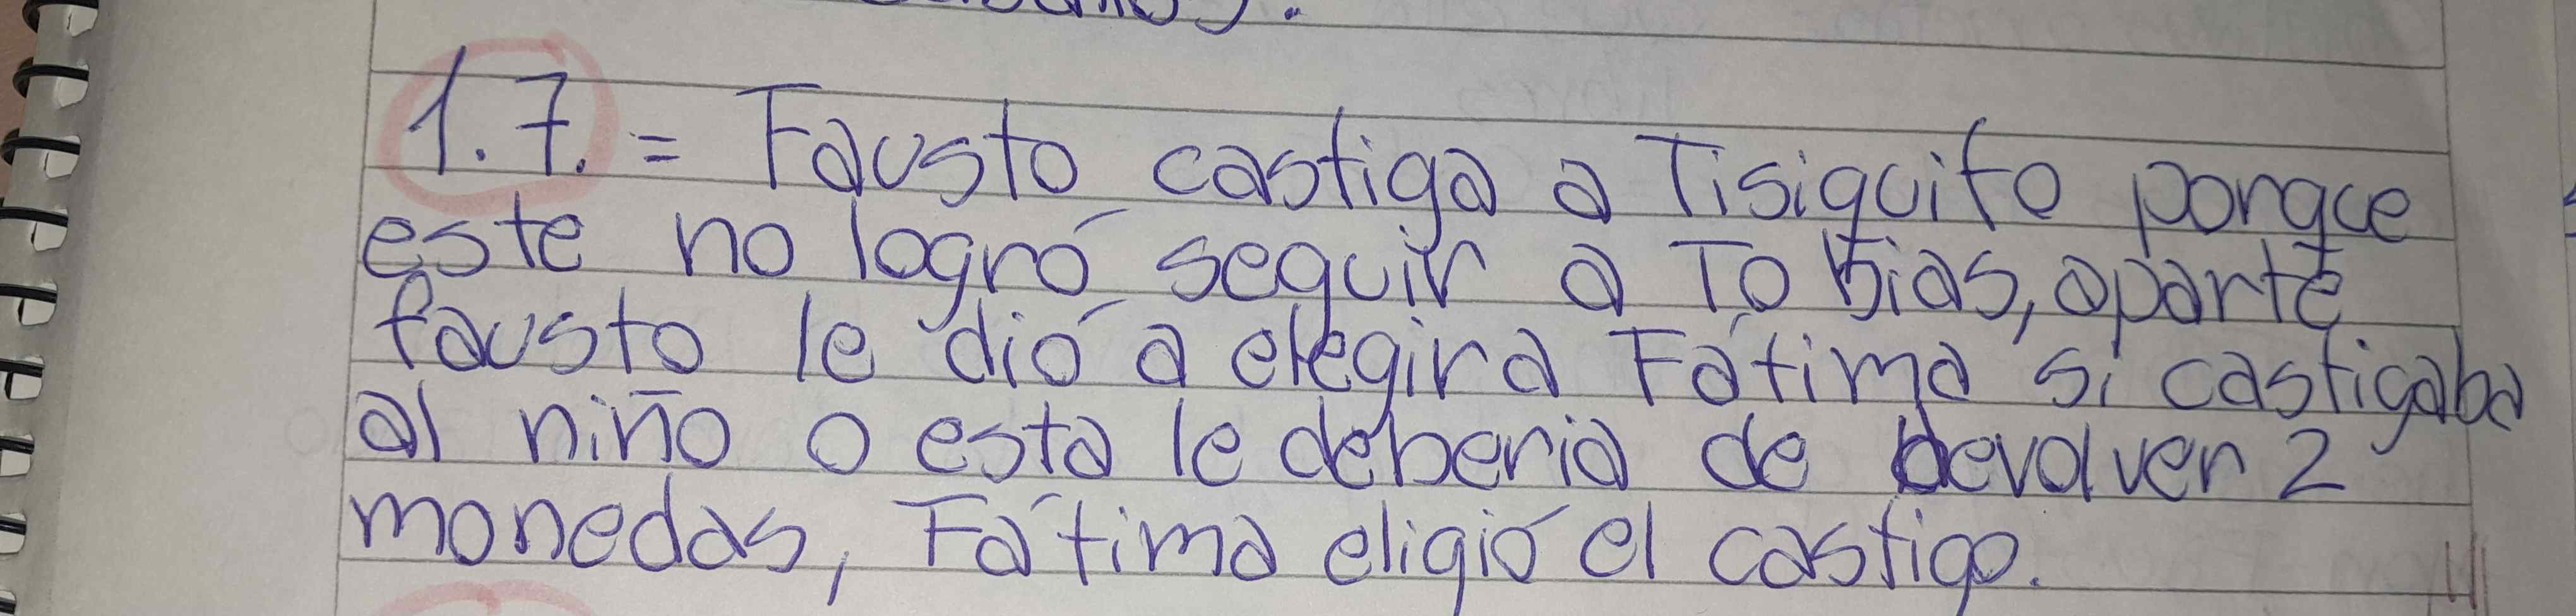 1.7. = Fausto castiga a Tisiquito porque
este no logró seguir a Tobias, aparte
fausto le dió a elegir a Fátima si castigaba
al niño o esta le deberia de devolver 2
monedas, Fátima eligió el castigo.